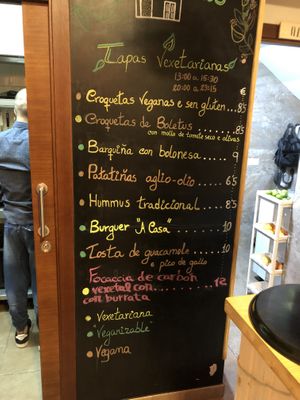 Tapas Vexetarianas
13:00 a 15:30
20:00 a 23:15
€
Croquetas Veganas e sen gluten...8'5
Croquetas de Boletus ........8'5
con mollo de tomate seco e olivas
Barquiña con bolonesa... 9
Patatiñas aglio-olio.... 6'5
Hummus tradicional...... 8'5
Burguer "A Casa"......10
Tosta de guacamole......10
e pico de gallo
Focaccia de carbón
vexetal con.........12
con burrata
Vexetariana
"Veganizable"
Vegana